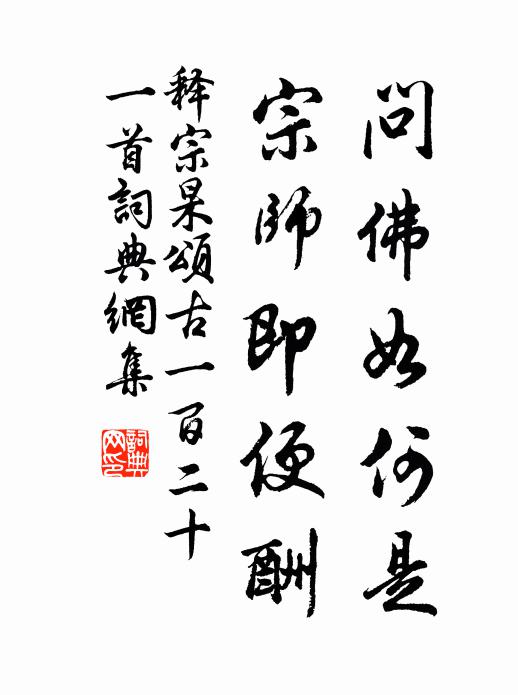 問佛如何是
宗師即便酬
释宗杲頌古一百二十
一首詞典網集
詞典網印